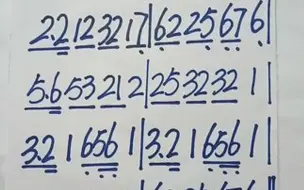 2.2 12 32 17|62 25 676|
5.6 53 21 2|25 32 32 1|
3.2 1 656 1|3.2 1 656 1|